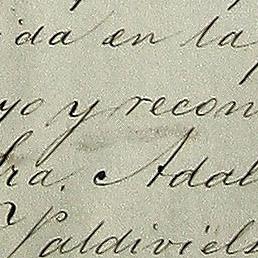 ida en la
yo y recon
fra. Adal
Valdiviels